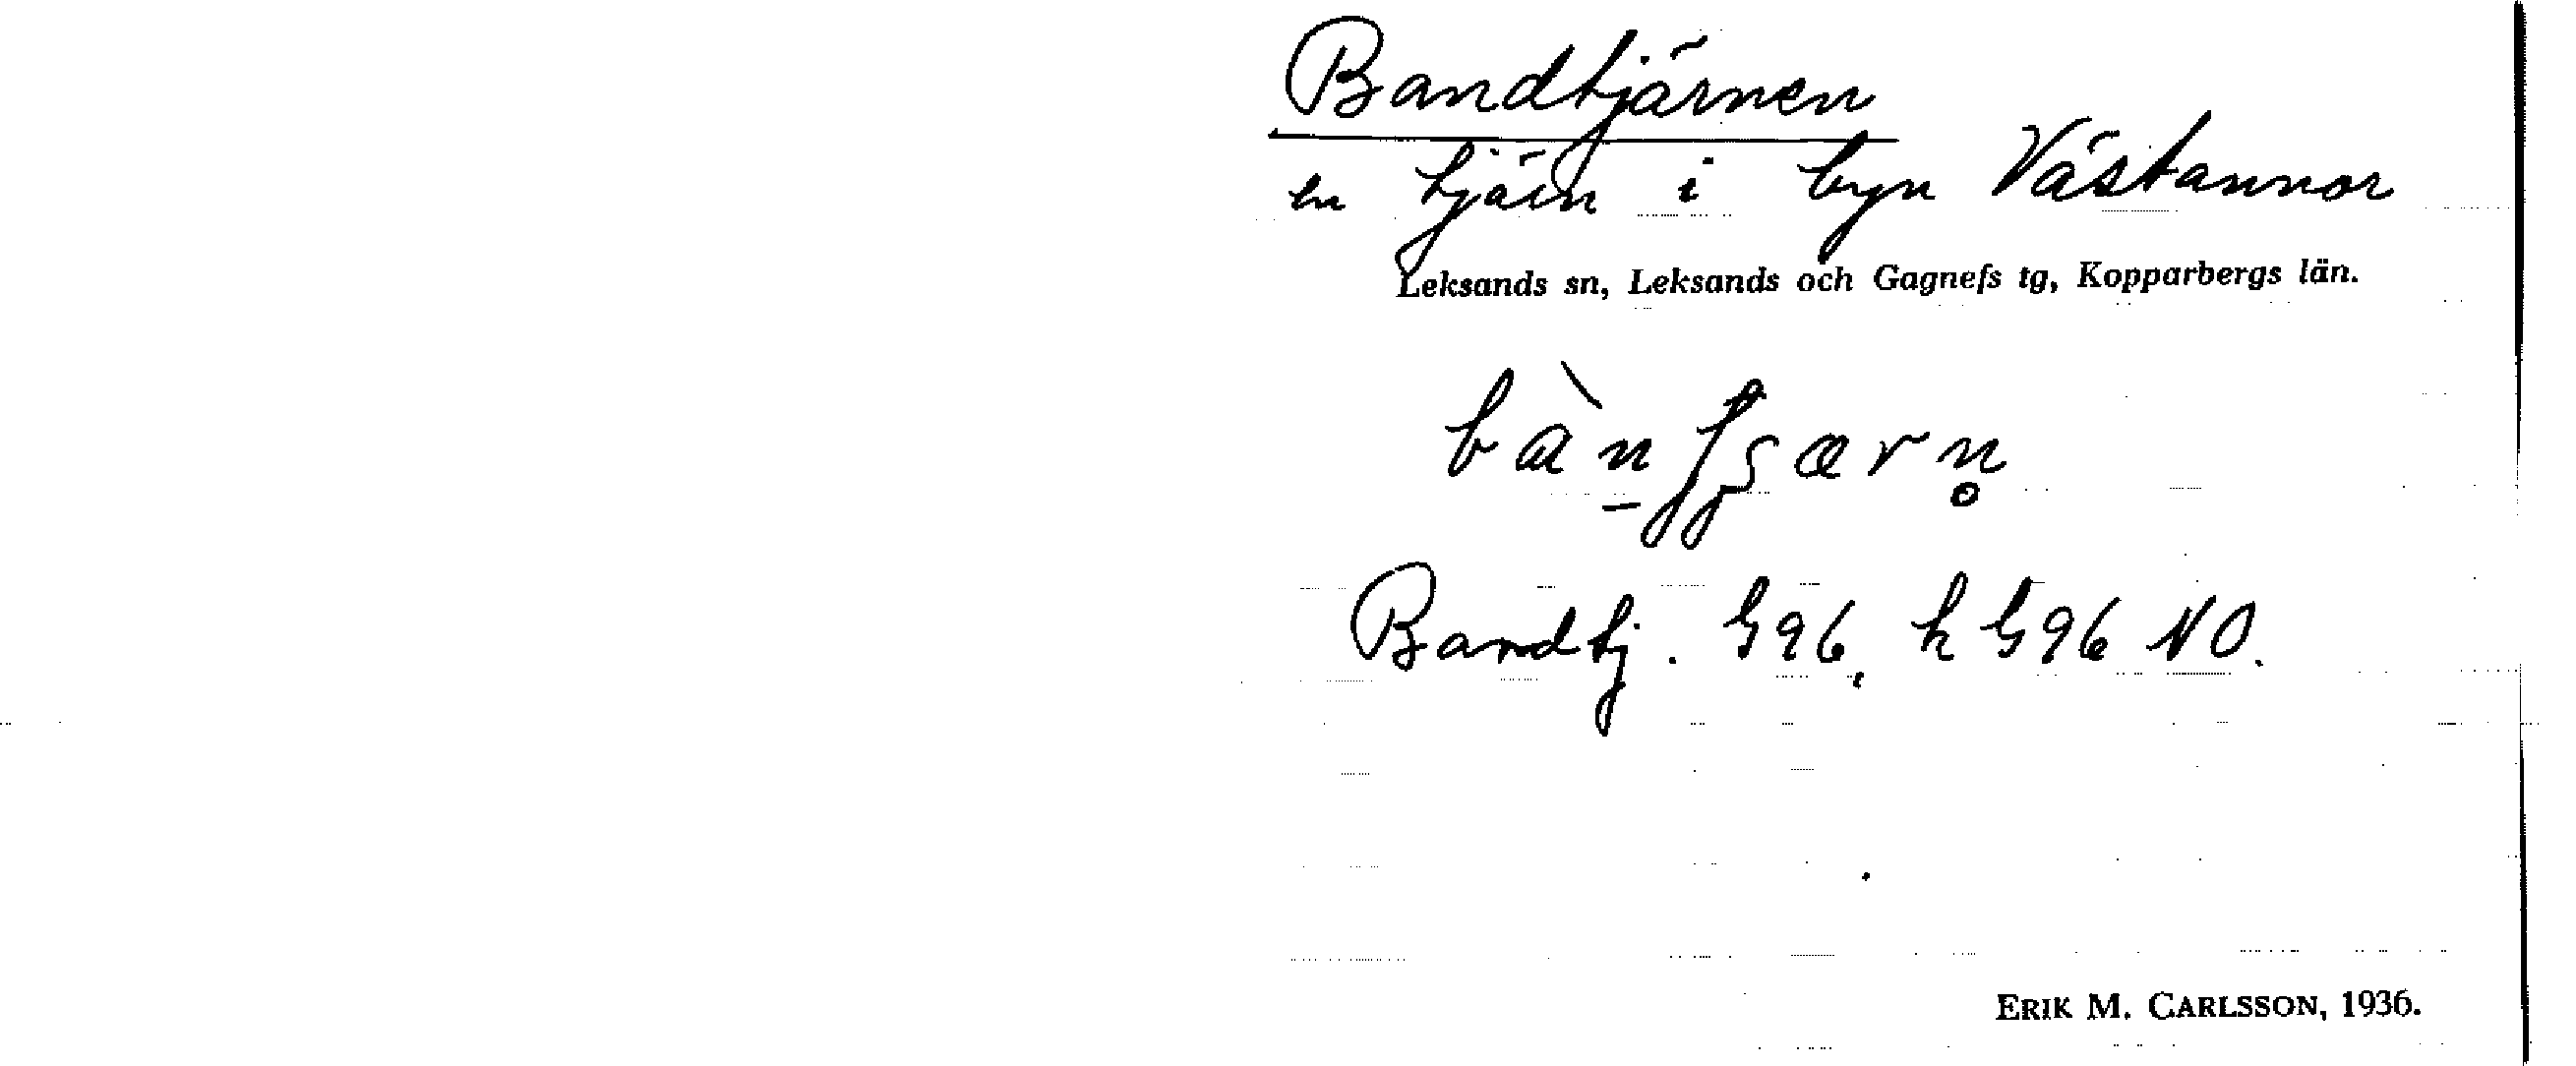 Bandtjärnen
en tjärn i byn Västannor
Leksands sn, Leksands och Gagnefs tg, Kopparbergs län.
Bandtj. G96, k G96 NO.
ERIK M. CARLSSON, 1936.